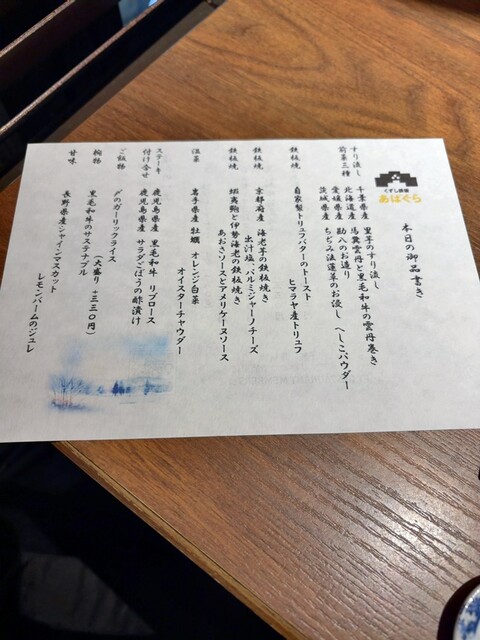 くずし鉄板
あばぐら
本日の御品書き
すり流し 千葉県産 里芋のすり流し
前菜三種 北海道産 馬糞雲丹と黒毛和牛の雲丹巻き
愛媛県産 勘八のお造り
茨城県産 ちぢみ法蓮草のお浸し へしこパウダー
鉄板焼 自家製トリュフバターのトースト
ヒマラヤ産トリュフ
鉄板焼 京都府産 海老芋の鉄板焼き
出汁塩、パルミジャーノチーズ
鉄板焼 蝦夷鮑と伊勢海老の鉄板焼き
あおさソースとアメリケーヌソース
温菜 岩手県産 牡蠣 オレンジ白菜
オイスターチャウダー
ステーキ 鹿児島県産 黒毛和牛 リブロース
付け合せ 鹿児島県産 サラダごぼうの酢漬け
ご飯物 〆のガーリックライス
(大盛り+330円)
椀物 黒毛和牛のサステナブル
甘味 長野県産シャインマスカット
レモンバームのジュレ